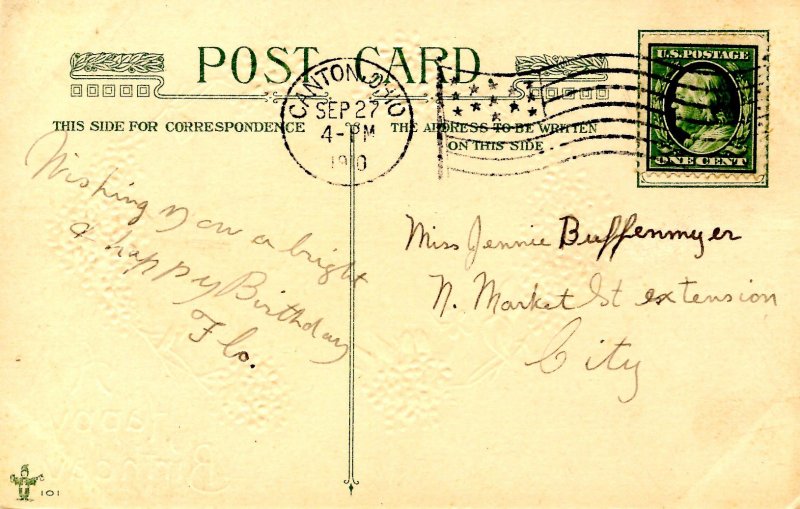 POST CARD
CANTON, OHIO
SEP 27
4- PM
1910
U.S. POSTAGE
ONE CENT
THIS SIDE FOR CORRESPONDENCE
THE ADDRESS TO BE WRITTEN
ON THIS SIDE
Wishing you a bright
& happy Birthday
Flo.
Miss Jennie Buffenmyer
N. Market St extension
City
Happy
Birthday
101